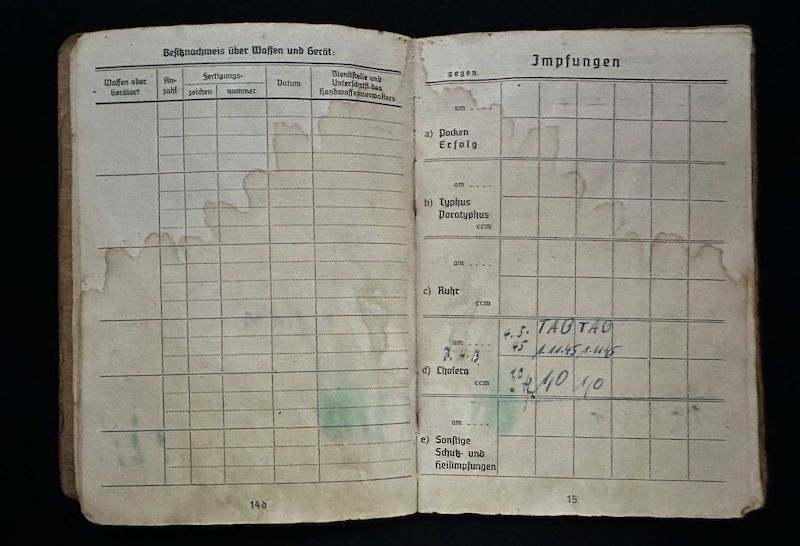 Besitznachweis über Waffen und Gerät:
Waffen oder Gerätart
An-
zahl
Fertigungs-
zeichen
nummer
Datum
Dienststelle und
Unterschrift des
Handwaffenverwalters
14d
Impfungen
gegen
am ....
a) Pocken
Erfolg
am ....
b) Typhus
Paratyphus
ccm
am ....
c) Ruhr
ccm
TAB TAB
am ....
45
1.11.45
d) Cholera
ccm
1,0 1,0
am ....
e) Sonstige
Schutz- und
Heilimpfungen
15